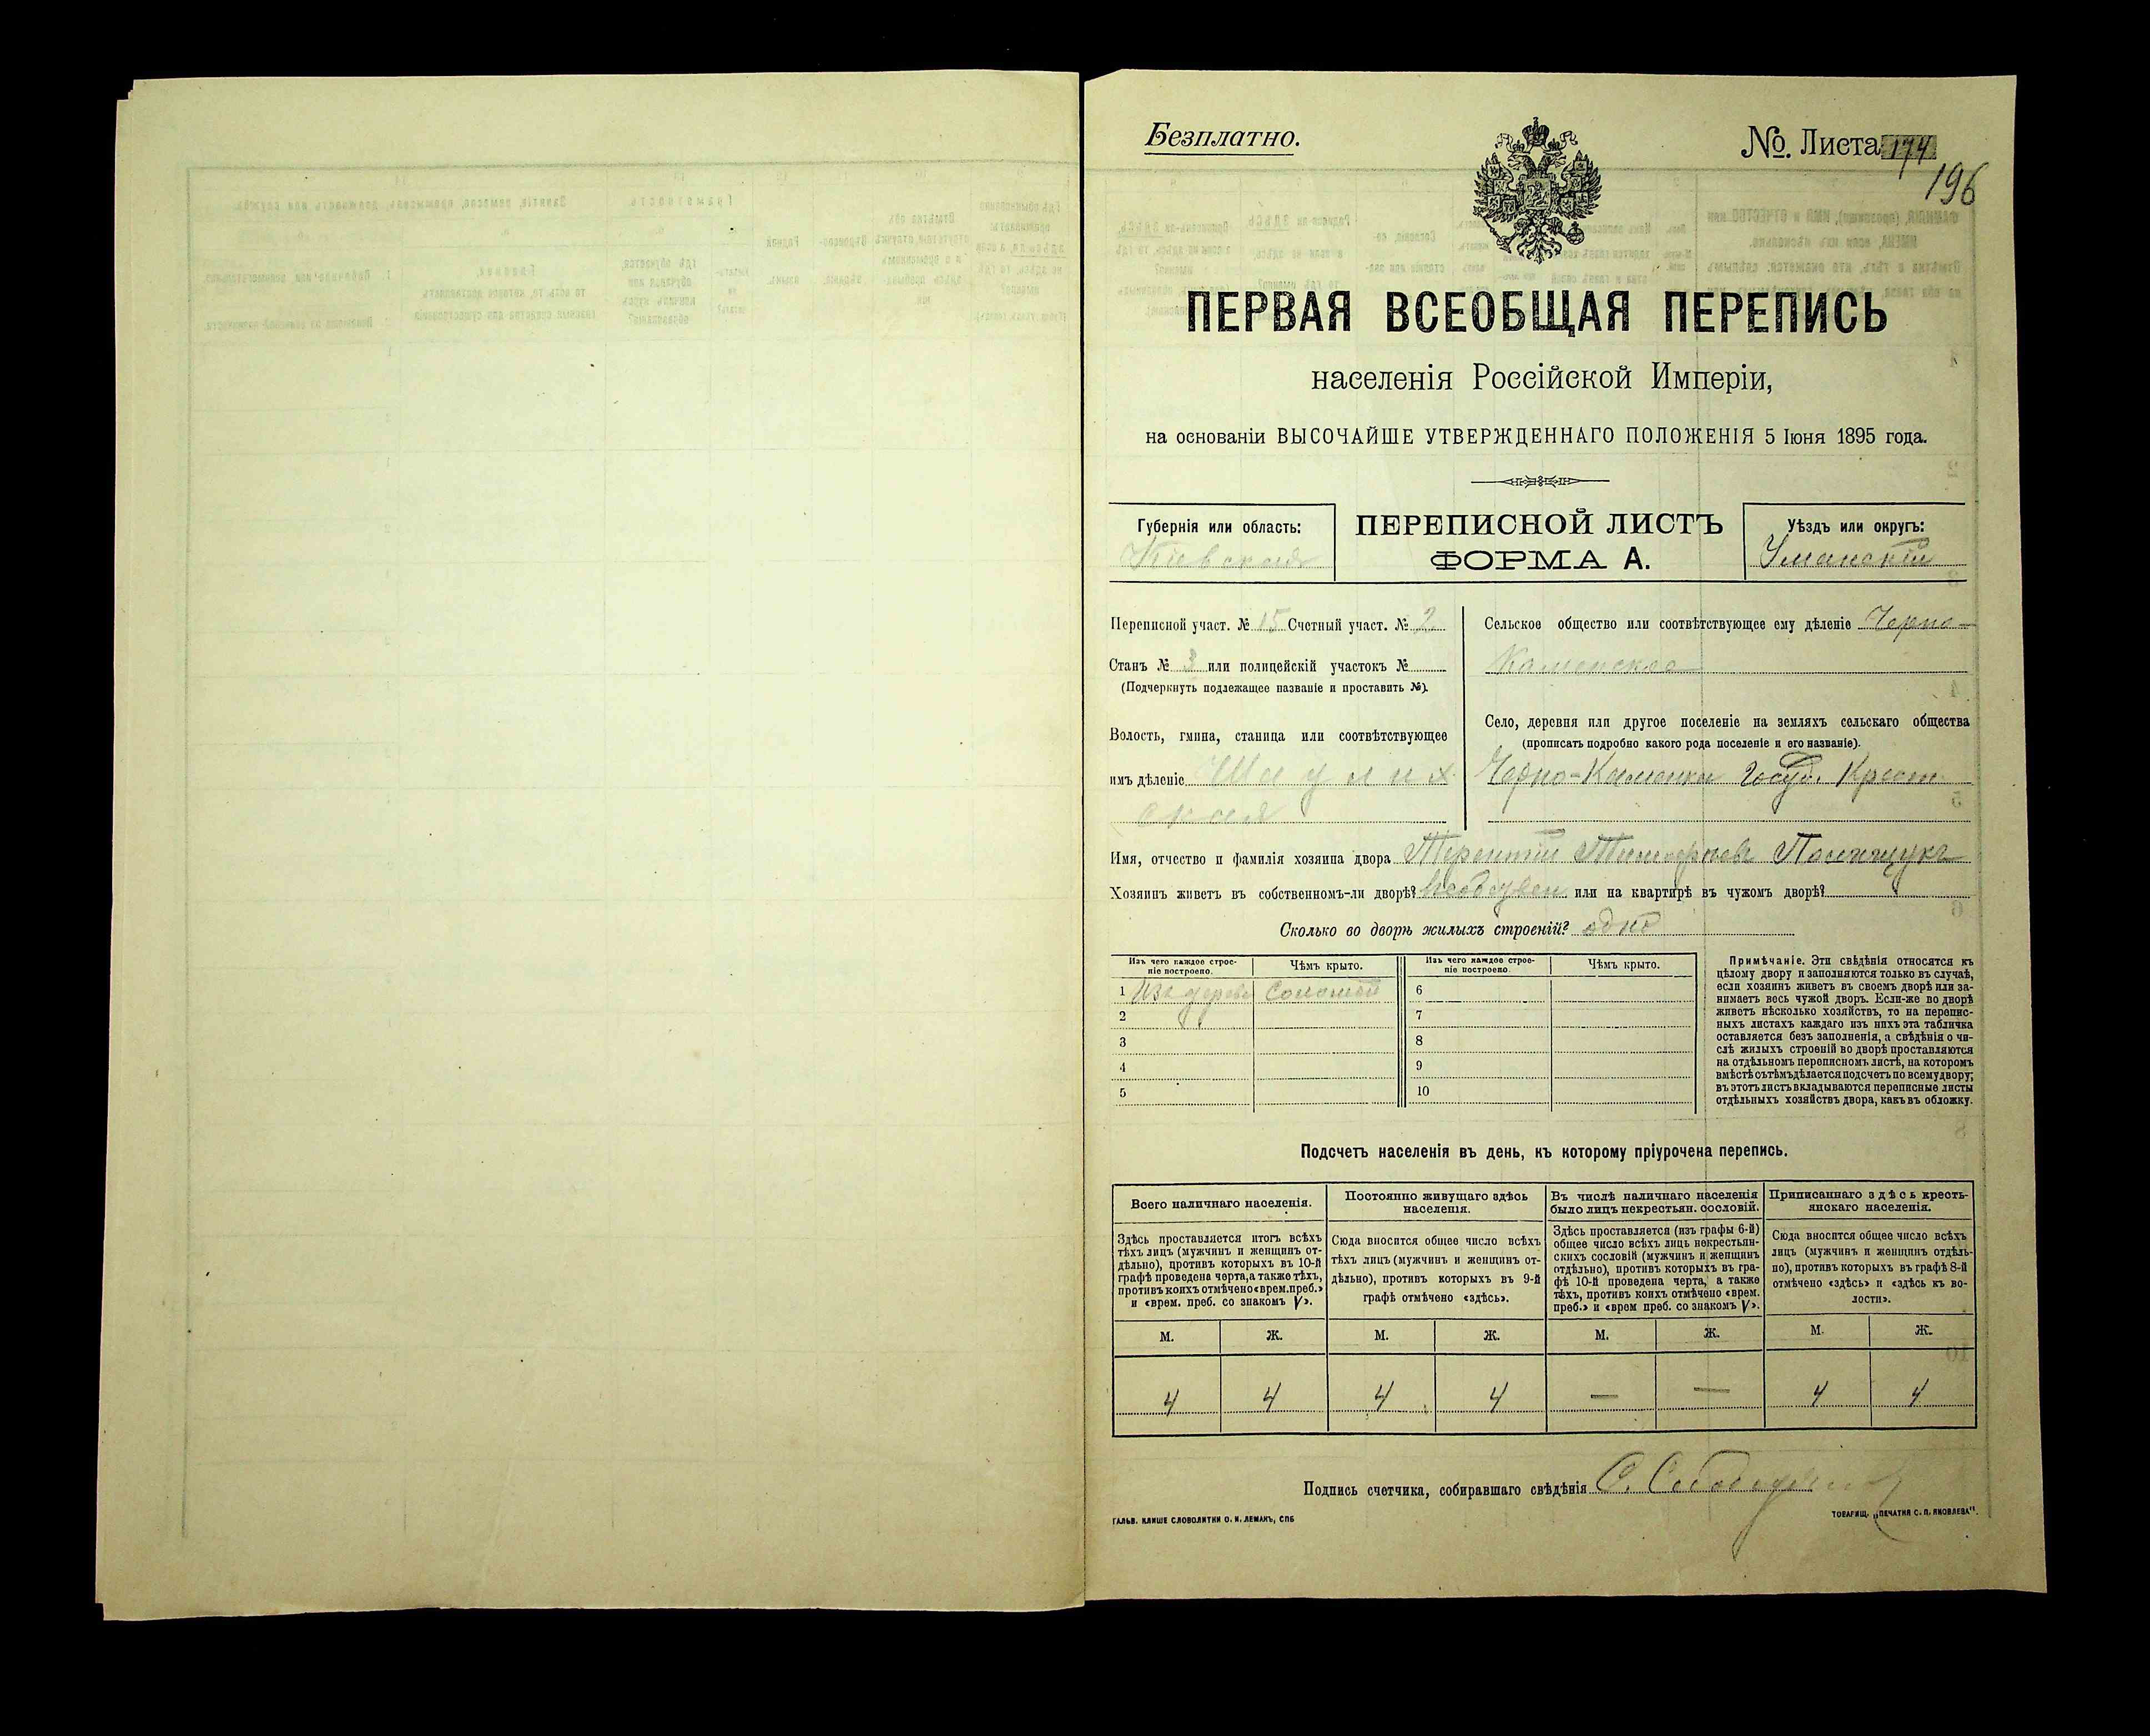 Безплатно.
№. Листа 174
196
ПЕРВАЯ ВСЕОБЩАЯ ПЕРЕПИСЬ
населенія Россійской Имперіи,
на основаніи ВЫСОЧАЙШЕ УТВЕРЖДЕННАГО ПОЛОЖЕНІЯ 5 Іюня 1895 года.
Губернія или область:
Кіевская
ПЕРЕПИСНОЙ ЛИСТЪ
ФОРМА А.
Уѣздъ или округъ:
Уманскій
Переписной участ. № 15 Счетный участ. № 2
Станъ № 3 или полицейскій участокъ №
(Подчеркнуть подлежащее названіе и проставить №).
Волость, гмина, станица или соотвѣтствующее
имъ дѣленіе Шаулих
ская
Сельское общество или соотвѣтствующее ему дѣленіе Черно-
Каменское
Село, деревня или другое поселеніе на земляхъ сельскаго общества
(прописать подробно какого рода поселеніе и его названіе).
Черно-Каменка Госуд. Крест
Имя, отчество и фамилія хозяина двора Терентій Тимофѣевъ Полищукъ
Хозяинъ живетъ въ собственномъ-ли дворѣ? или на квартирѣ въ чужомъ дворѣ?
Сколько во дворѣ жилыхъ строеній? одно
Изъ чего каждое строе-
ніе построено.
Чѣмъ крыто.
Изъ чего каждое строе-
ніе построено.
Чѣмъ крыто.
1 Изъ дерева Соломой 6
2 7
3 8
4 9
5 10
Примѣчаніе. Эти свѣдѣнія относятся къ
цѣлому двору и заполняются только въ случаѣ,
если хозяинъ живетъ въ своемъ дворѣ или за-
нимаетъ весь чужой дворъ. Если-же во дворѣ
живетъ нѣсколько хозяйствъ, то на перепис-
ныхъ листахъ каждаго изъ нихъ эта табличка
оставляется безъ заполненія, а свѣдѣнія о чи-
слѣ жилыхъ строеній во дворѣ проставляются
на отдѣльномъ переписномъ листѣ, на которомъ
вмѣстѣ съ тѣмъ дѣлается подсчетъ по всему двору;
въ этотъ листъ вкладываются переписные листы
отдѣльныхъ хозяйствъ двора, какъ въ обложку.
Подсчетъ населенія въ день, къ которому пріурочена перепись.
Всего наличнаго населенія.
Здѣсь проставляется итогъ всѣхъ
тѣхъ лицъ (мужчинъ и женщинъ от-
дѣльно), противъ которыхъ въ 10-й
графѣ проведена черта, а также тѣхъ,
противъ коихъ отмѣчено «врем. преб.»
и «врем. преб. со знакомъ V».
Постоянно живущаго здѣсь
населенія.
Сюда вносится общее число всѣхъ
тѣхъ лицъ (мужчинъ и женщинъ от-
дѣльно), противъ которыхъ въ 9-й
графѣ отмѣчено «здѣсь».
Въ числѣ наличнаго населенія
было лицъ некрестьян. сословій.
Здѣсь проставляется (изъ графы 6-й)
общее число всѣхъ лицъ некрестьян-
скихъ сословій (мужчинъ и женщинъ
отдѣльно), противъ которыхъ въ гра-
фѣ 10-й проведена черта, а также
тѣхъ, противъ коихъ отмѣчено «врем.
преб.» и «врем преб. со знакомъ V».
Приписаннаго здѣсь кресть-
янскаго населенія.
Сюда вносится общее число всѣхъ
лицъ (мужчинъ и женщинъ отдѣль-
но), противъ которыхъ въ графѣ 8-й
отмѣчено «здѣсь» и «здѣсь къ во-
лости».
М. Ж. М. Ж. М. Ж. М. Ж.
4 4 4 4 — — 4 4
Подпись счетчика, собиравшаго свѣдѣнія
ГАЛЬВ. КЛИШЕ СЛОВОЛИТНИ О. И. ЛЕМАНЪ, СПБ
ТОВАРИЩ. „ПЕЧАТНЯ С. П. ЯКОВЛЕВА".